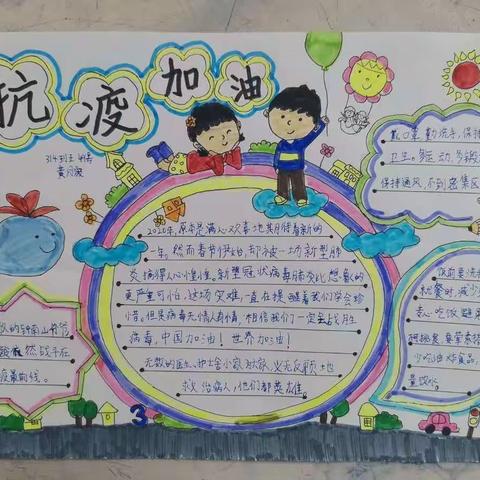 抗疫加油
2020年,原本是满心欢喜地期待着新的
一年。然而春节伊始,却被一场新型肺
炎搞得人心惶惶。新型冠状病毒肺炎比想象的
更严重可怕,这场灾难,一直在提醒着我们学会珍
惜。但是病毒无情人有情,相信我们一定会战胜
病毒,中国加油!世界加油!
无数的医生、护士舍小家为大家,义无反顾地
救治病人,他们都是英雄。
戴口罩,勤洗手,保持
卫生。多运动,多锻
保持通风,不到密集区
饭前要洗
就餐时,减少
吃饭
少吃油炸食品,
量饮水
的钟南山爷爷
依然战斗在
疫最前线。
3